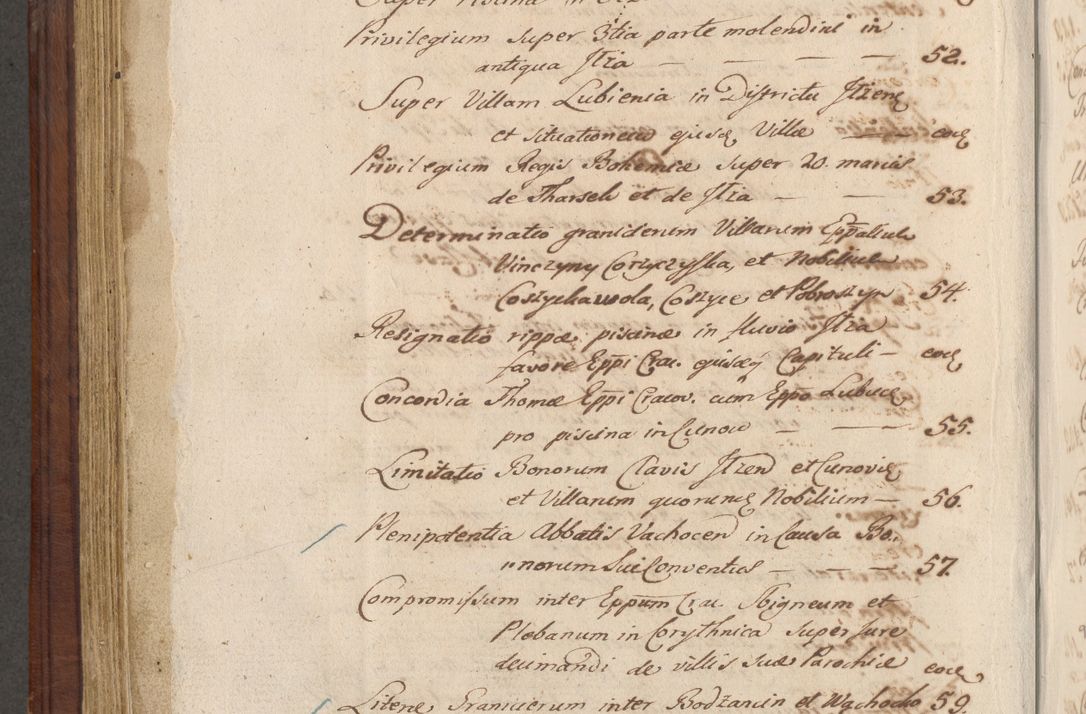 Privilegium super 3tia parte molendini in
antiqua Ilza — — — — 52.
Super Villam Lubienia in Districtu Ilzen
et situationem ejusq Villæ — eoq
Privilegium Regis Bohemiæ super 20. marcis
de Tharsek et de Ilza — — 53.
Determinatio granicierum Villarum Eppaliulm
Vinczyny Coszyczyska, et Nobilium
Costyckawola, Costyce et Pobroszyn 54.
Resignatio rippæ piscinæ in fluvio Ilza
favore Eppi Crac. ejusq Capituli — eoq
Concordia Thomæ Eppi Cracov. cum Eppo Lubuc
pro piscina in Cunow — — 55.
Limitatio Bonorum Clavis Ilzen et Cunovie
et Villarum quorumq Nobilium — 56.
Plenipotentia Abbatis Vachocen in Causa Bo-
norum sui Conventus — — — 57.
Compromissum inter Eppum Crac. Sbigneum et
Plebanum in Corythnica super jure
decimandi de villis suæ Parochiæ eoq
Literæ Granicierum inter Bodzancin et Wachocko 59.